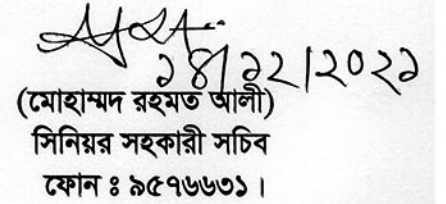 ১৪/১২/২০২১
(মোহাম্মদ রহমত আলী)
সিনিয়র সহকারী সচিব
ফোন ঃ ৯৫৭৬৬৩১।